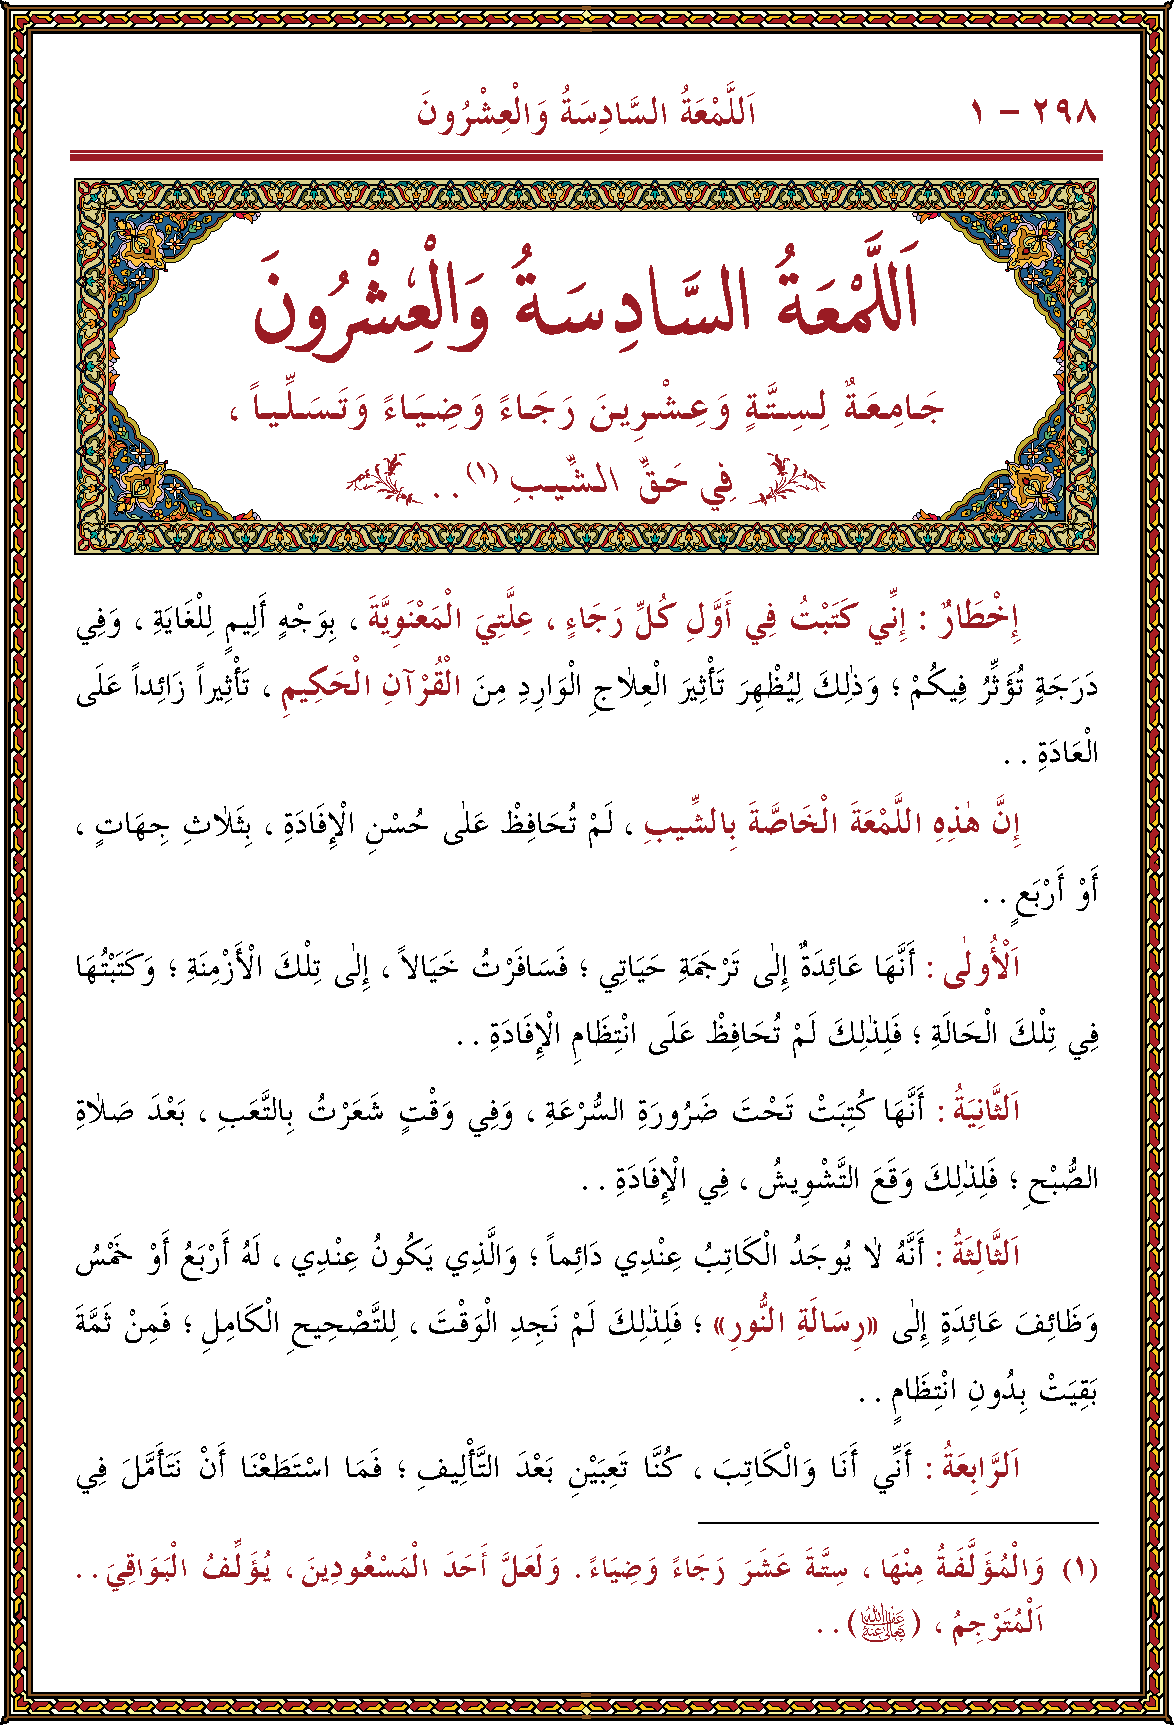 ٢٩٨ – ١
اَللَّمْعَةُ السَّادِسَةُ وَالْعِشْرُونَ
اَللَّمْعَةُ السَّادِسَةُ وَالْعِشْرُونَ
جَامِعَةٌ لِسِتَّةٍ وَعِشْرِينَ رَجَاءً وَضِيَاءً وَتَسَلِّياً ،
فِي حَقِّ الشِّيبِ (١) . .
إِخْطَارٌ : إِنِّي كَتَبْتُ فِي أَوَّلِ كُلِّ رَجَاءٍ ، عِلَّتِيَ الْمَعْنَوِيَّةَ ، بِوَجْهٍ أَلِيمٍ لِلْغَايَةِ ، وَفِي
دَرَجَةٍ تُؤَثِّرُ فِيكُمْ ؛ وَذٰلِكَ لِيُظْهِرَ تَأْثِيرَ الْعِلاٰجِ الْوَارِدِ مِنَ الْقُرْآنِ الْحَكِيمِ ، تَأْثِيراً زَائِداً عَلَى
الْعَادَةِ . .
إِنَّ هٰذِهِ اللَّمْعَةَ الْخَاصَّةَ بِالشِّيبِ ، لَمْ تُحَافِظْ عَلٰى حُسْنِ الْإِفَادَةِ ، بِثَلاٰثِ جِهَاتٍ ،
أَوْ أَرْبَعٍ . .
اَلْأُولٰى : أَنَّهَا عَائِدَةٌ إِلٰى تَرْجَمَةِ حَيَاتِي ؛ فَسَافَرْتُ خَيَالاً ، إِلٰى تِلْكَ الْأَزْمِنَةِ ؛ وَكَتَبْتُهَا
فِي تِلْكَ الْحَالَةِ ؛ فَلِذٰلِكَ لَمْ تُحَافِظْ عَلَى انْتِظَامِ الْإِفَادَةِ . .
اَلثَّانِيَةُ : أَنَّهَا كُتِبَتْ تَحْتَ ضَرُورَةِ السُّرْعَةِ ، وَفِي وَقْتٍ شَعَرْتُ بِالتَّعَبِ ، بَعْدَ صَلاٰةِ
الصُّبْحِ ؛ فَلِذٰلِكَ وَقَعَ التَّشْوِيشُ ، فِي الْإِفَادَةِ . .
اَلثَّالِثَةُ : أَنَّهُ لاٰ يُوجَدُ الْكَاتِبُ عِنْدِي دَائِماً ؛ وَالَّذِي يَكُونُ عِنْدِي ، لَهُ أَرْبَعُ أَوْ خَمْسُ
وَظَائِفَ عَائِدَةٍ إِلٰى «رِسَالَةِ النُّورِ» ؛ فَلِذٰلِكَ لَمْ نَجِدِ الْوَقْتَ ، لِلتَّصْحِيحِ الْكَامِلِ ؛ فَمِنْ ثَمَّةَ
بَقِيَتْ بِدُونِ انْتِظَامٍ . .
اَلرَّابِعَةُ : أَنِّي أَنَا وَالْكَاتِبَ ، كُنَّا تَعِبَيْنِ بَعْدَ التَّأْلِيفِ ؛ فَمَا اسْتَطَعْنَا أَنْ نَتَأَمَّلَ فِي
(١) وَالْمُؤَلَّفَةُ مِنْهَا ، سِتَّةَ عَشَرَ رَجَاءً وَضِيَاءً . وَلَعَلَّ أَحَدَ الْمَسْعُودِينَ ، يُؤَلِّفُ الْبَوَاقِيَ . .
اَلْمُتَرْجِمُ ، (رَضِيَ اللّٰهُ تَعَالٰى عَنْهُ) . .